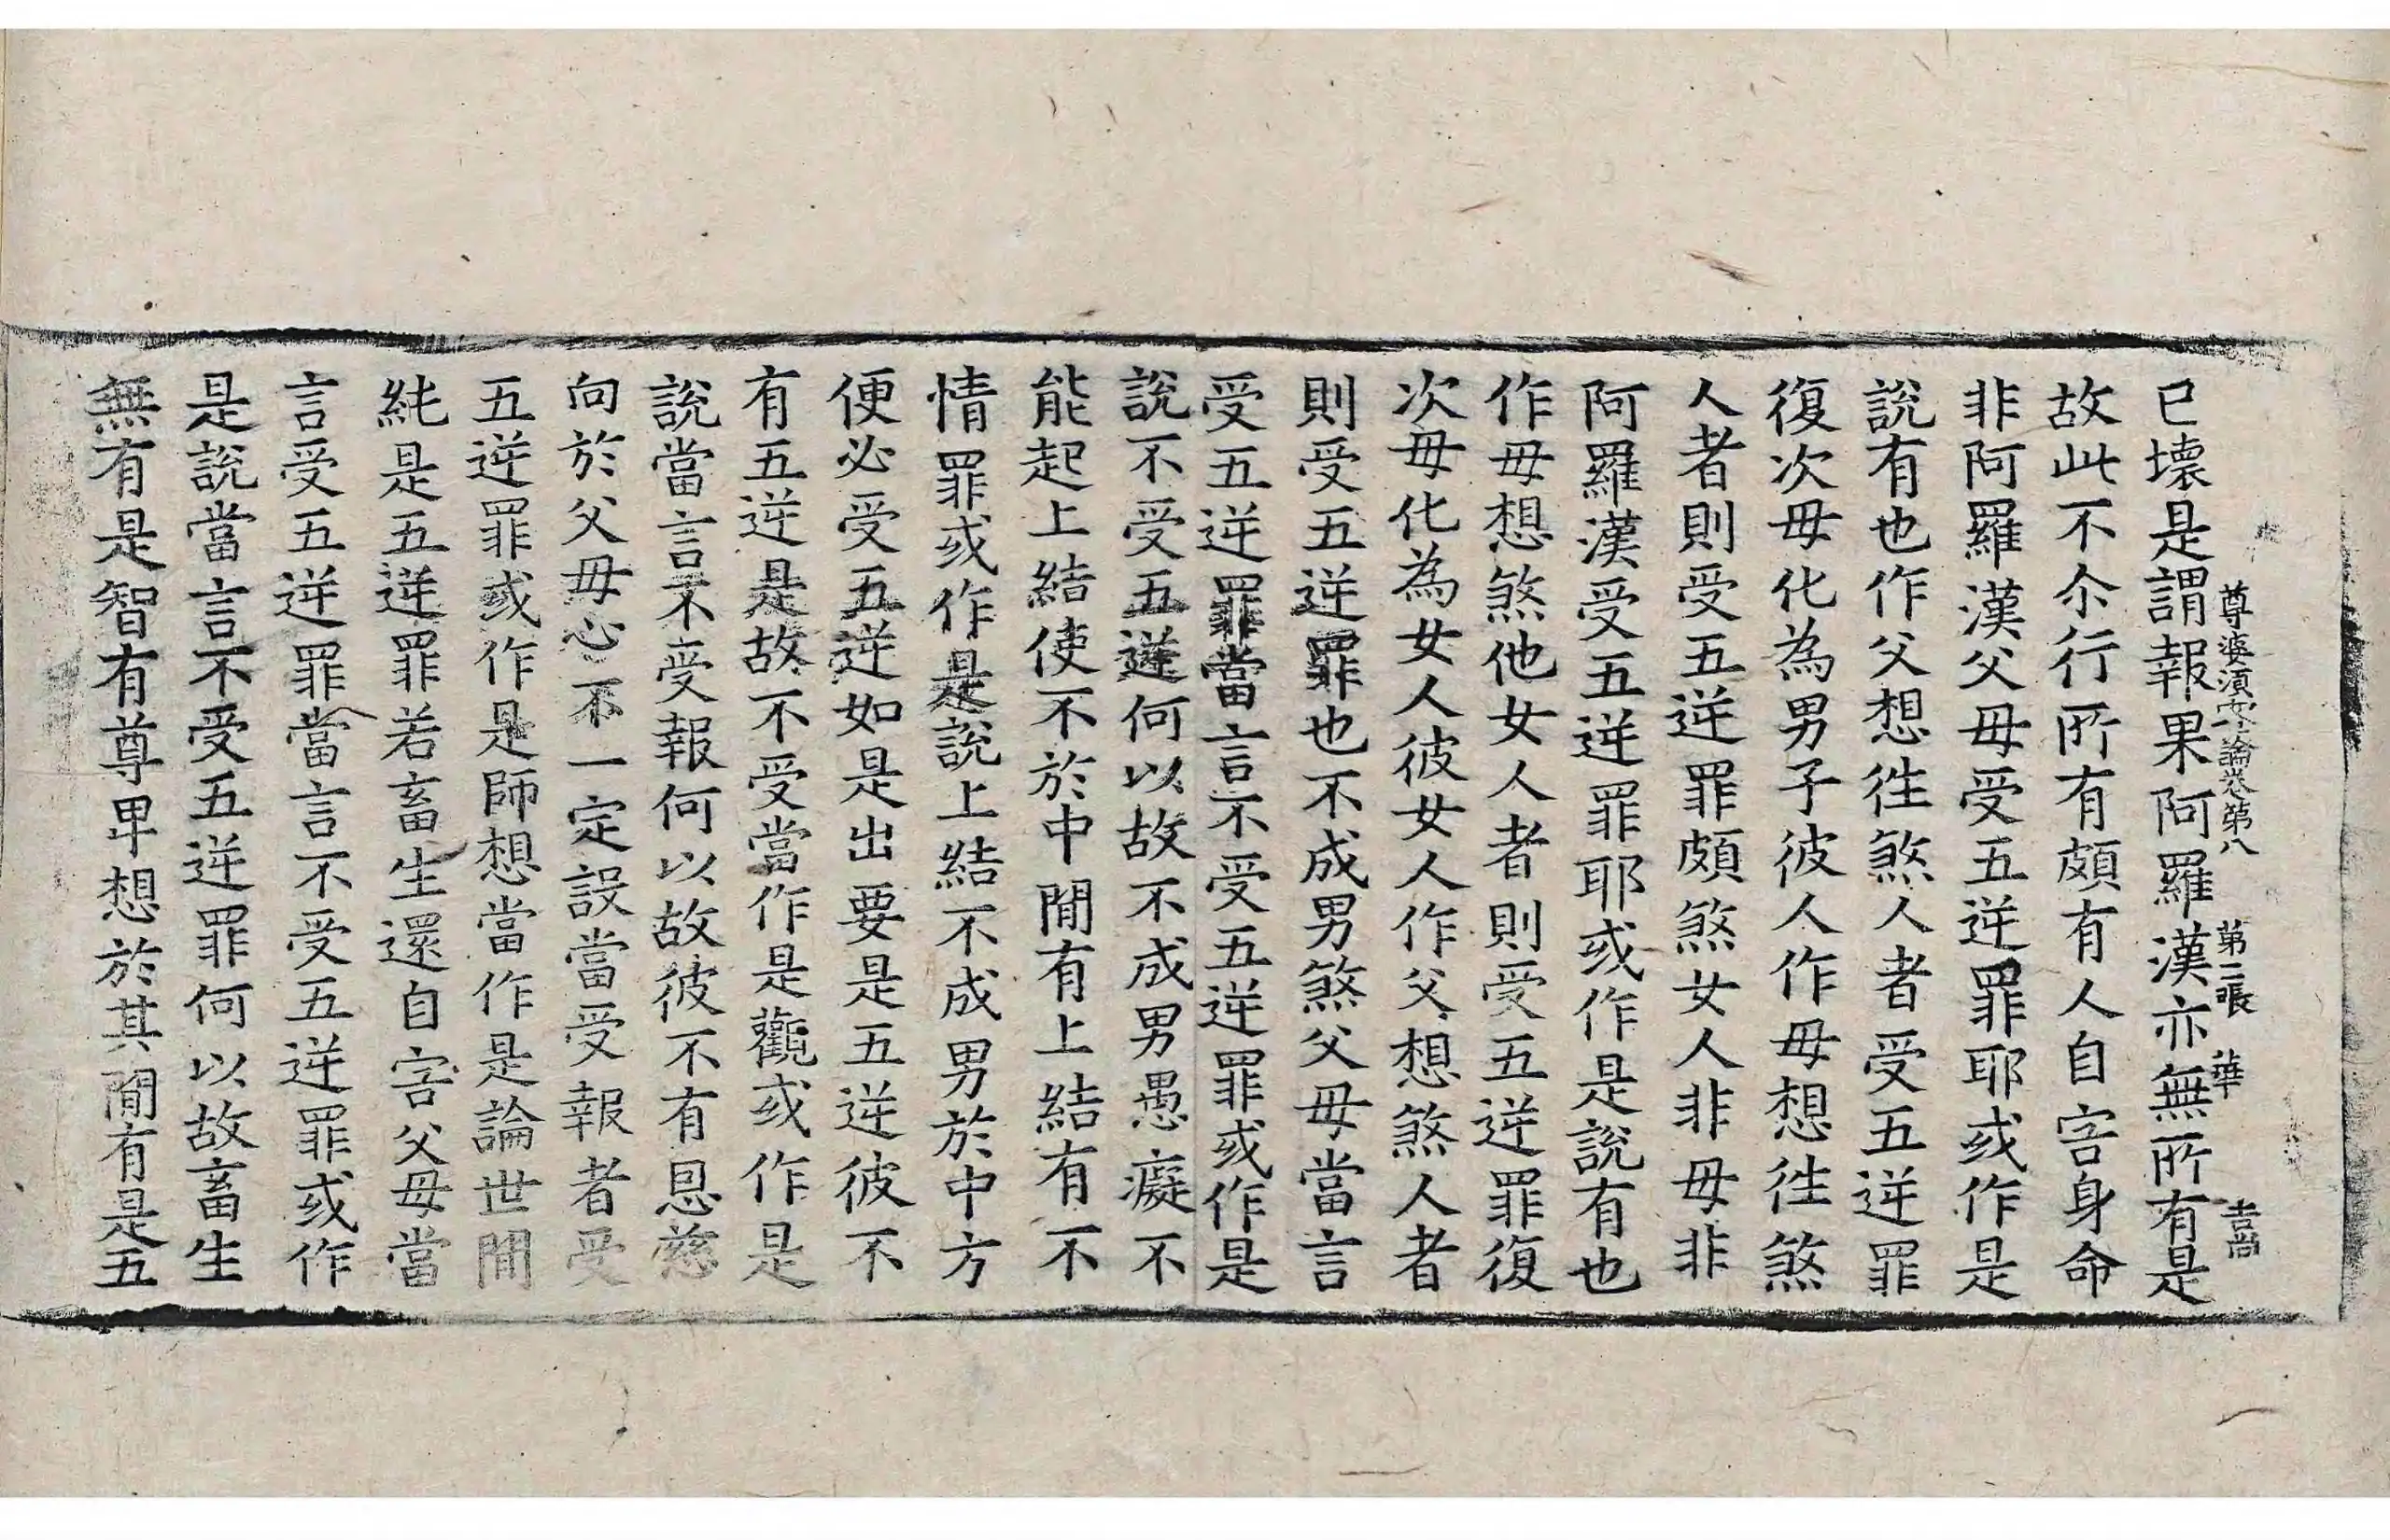 尊婆須蜜論卷第八 第二張 華
已壞是謂報果阿羅漢亦無所有是
故此不尒行所有頗有人自害身命
非阿羅漢父母受五逆罪耶或作是
說有也作父想往煞人者受五逆罪
復次母化為男子彼人作母想往煞
人者則受五逆罪頗煞女人非母非
阿羅漢受五逆罪耶或作是說有也
作母想煞他女人者則受五逆罪復
次母化為女人彼女人作父想煞人者
則受五逆罪也不成男煞父母當言
受五逆罪當言不受五逆罪或作是
說不受五逆何以故不成男愚癡不
能起上結使不於中間有上結有不
情罪或作是說上結不成男於中方
便必受五逆如是出要是五逆彼不
有五逆是故不受當作是觀或作是
說當言不受報何以故彼不有恩慈
向於父母心不一定設當受報者受
五逆罪或作是師想當作是論世間
純是五逆罪若畜生還自害父母當
言受五逆罪當言不受五逆罪或作
是說當言不受五逆罪何以故畜生
無有是智有尊卑想於其間有是五